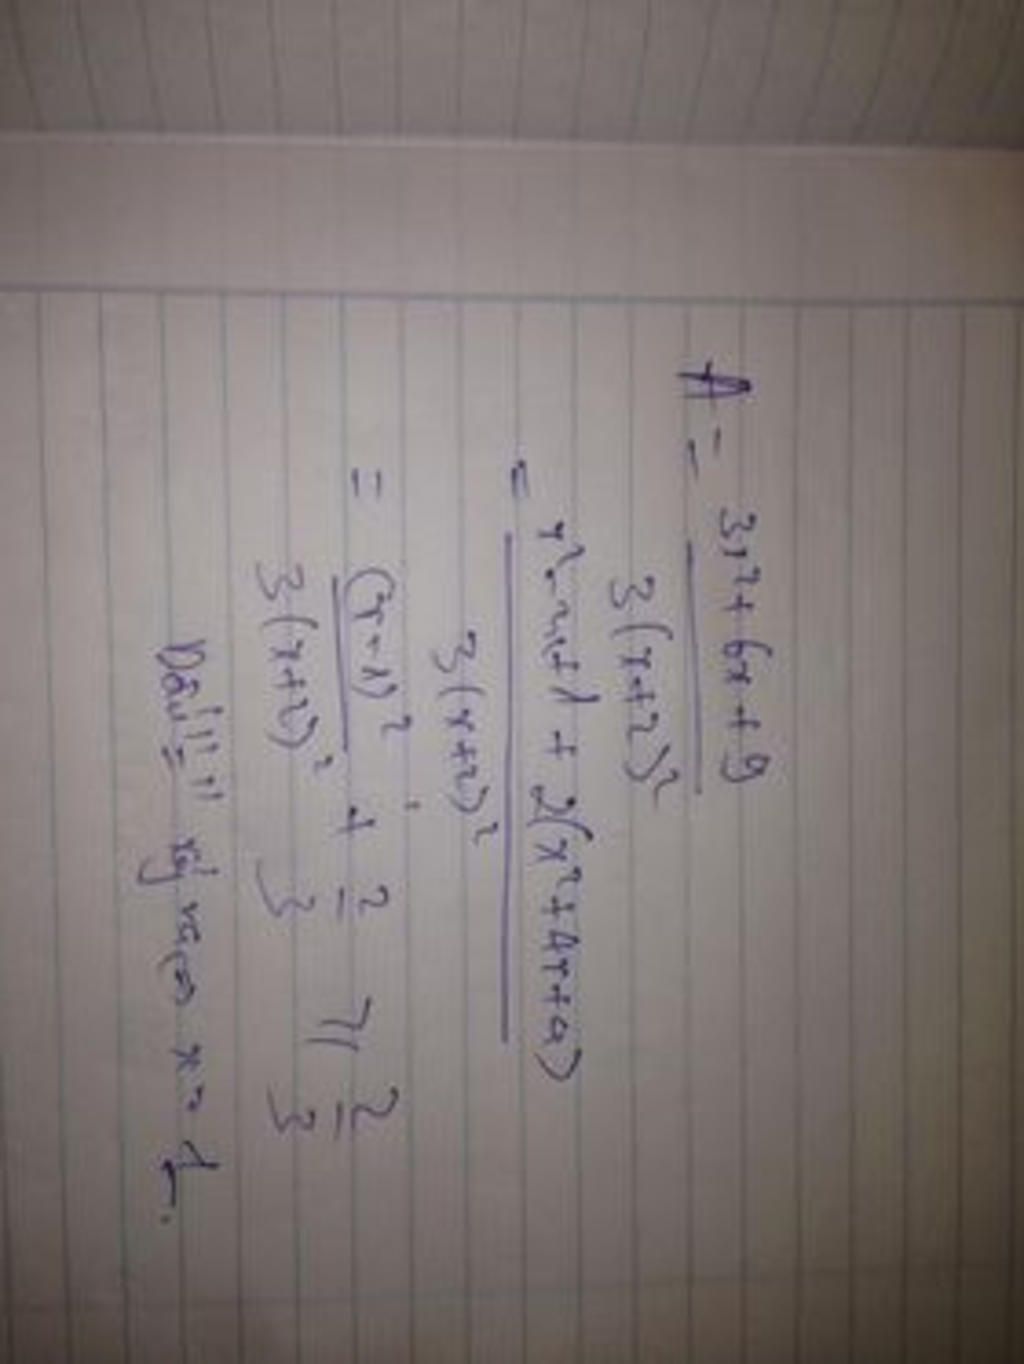 A = 3x² + 6x + 9
3(x+2)²
= x² - 2x + 1 + 2(x² + 4x + 4)
3(x+2)²
= (x-1)² + 2 ≥ 2
3(x+2)² 3 3
Dấu "=" xảy ra <=> x = 1.